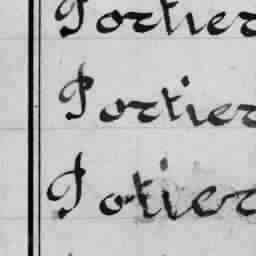 Portier
Portier
Potier